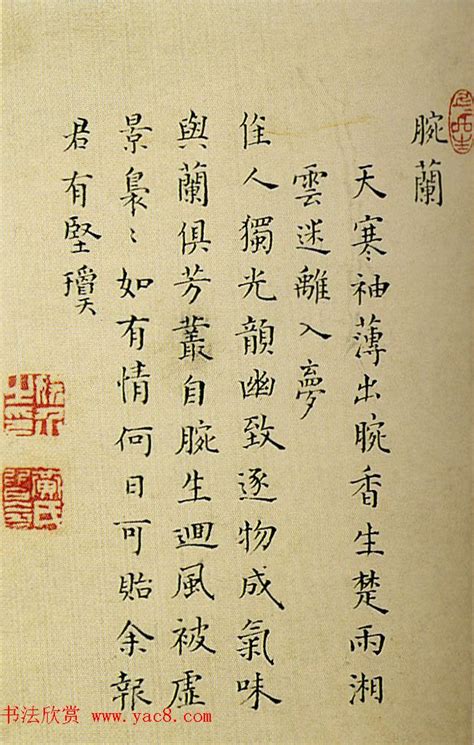 腕蘭
天寒袖薄出腕香生楚雨湘
雲迷離入夢
佳人獨光韻幽致逐物成氣味
與蘭俱芳叢自腕生迴風被虛
景裊〻如有情何日可貽余報
君有堅
书法欣赏 www.yac8.com